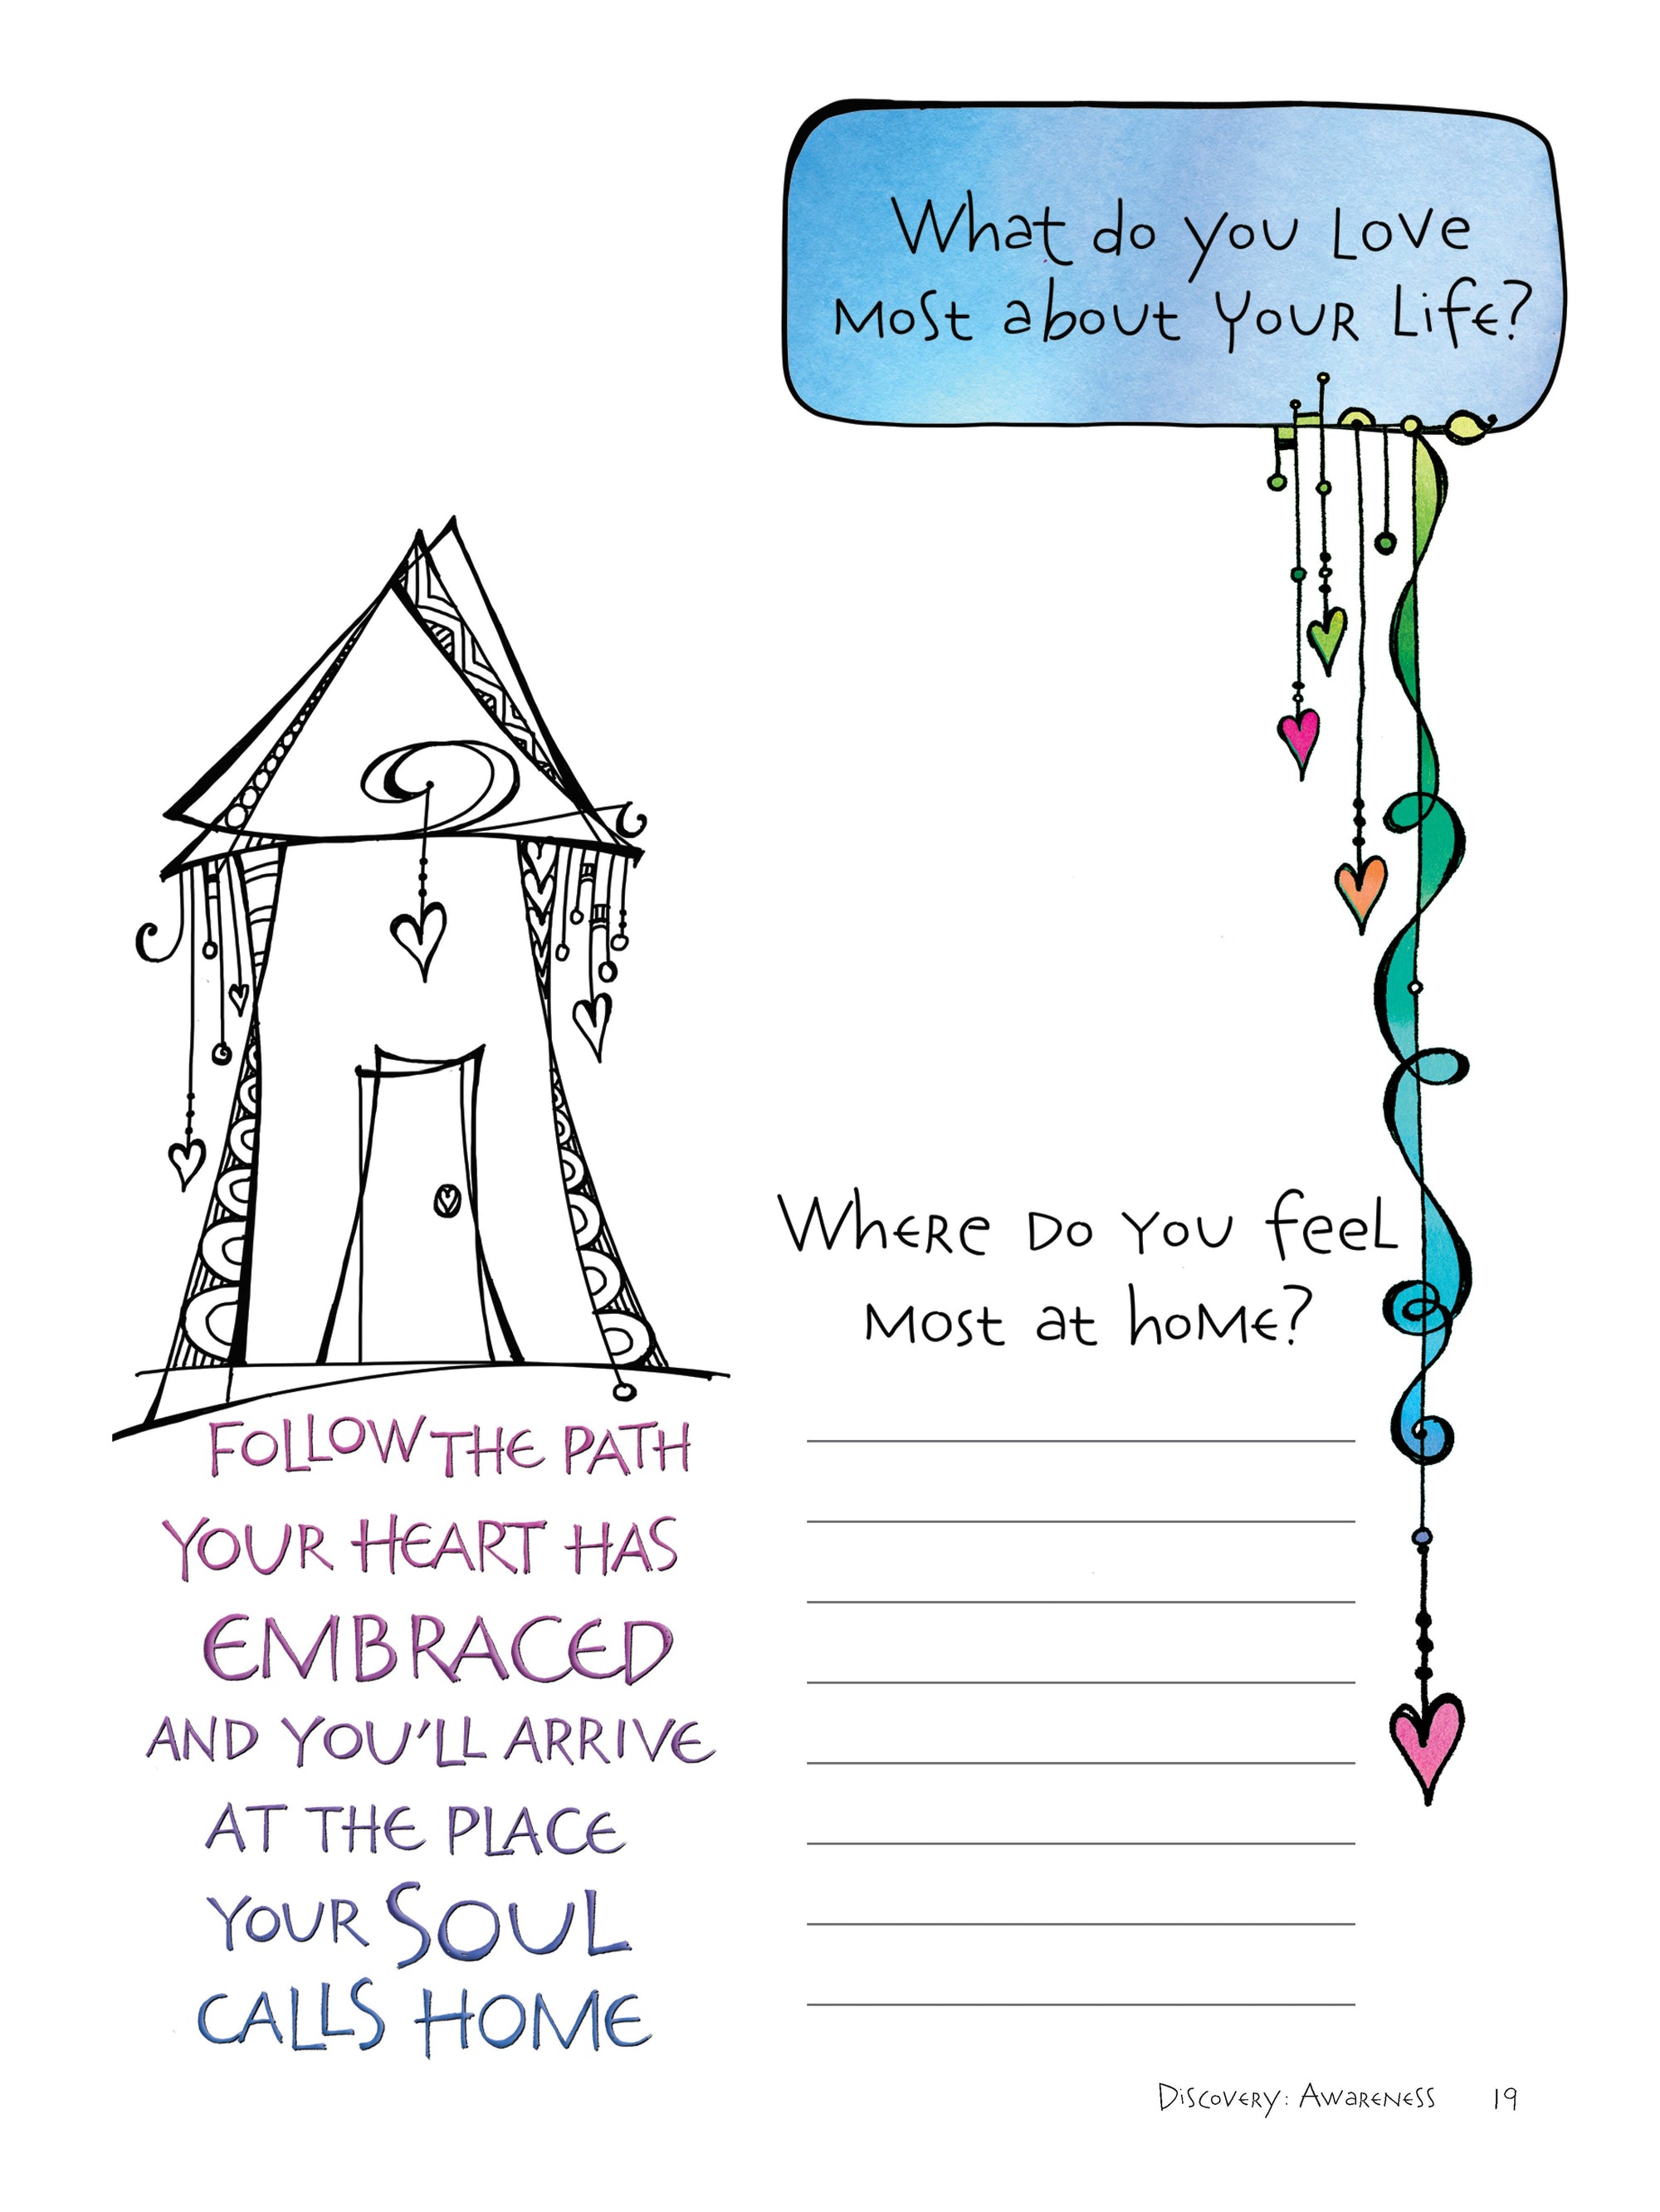 What do you Love
Most about Your Life?
Where Do You feel
Most at hoMe?
FOLLOW THE PATH
YOUR HEART HAS
EMBRACED
AND YOU'LL ARRIVE
AT THE PLACE
YOUR SOUL
CALLS HOME
Discovery: Awareness 19